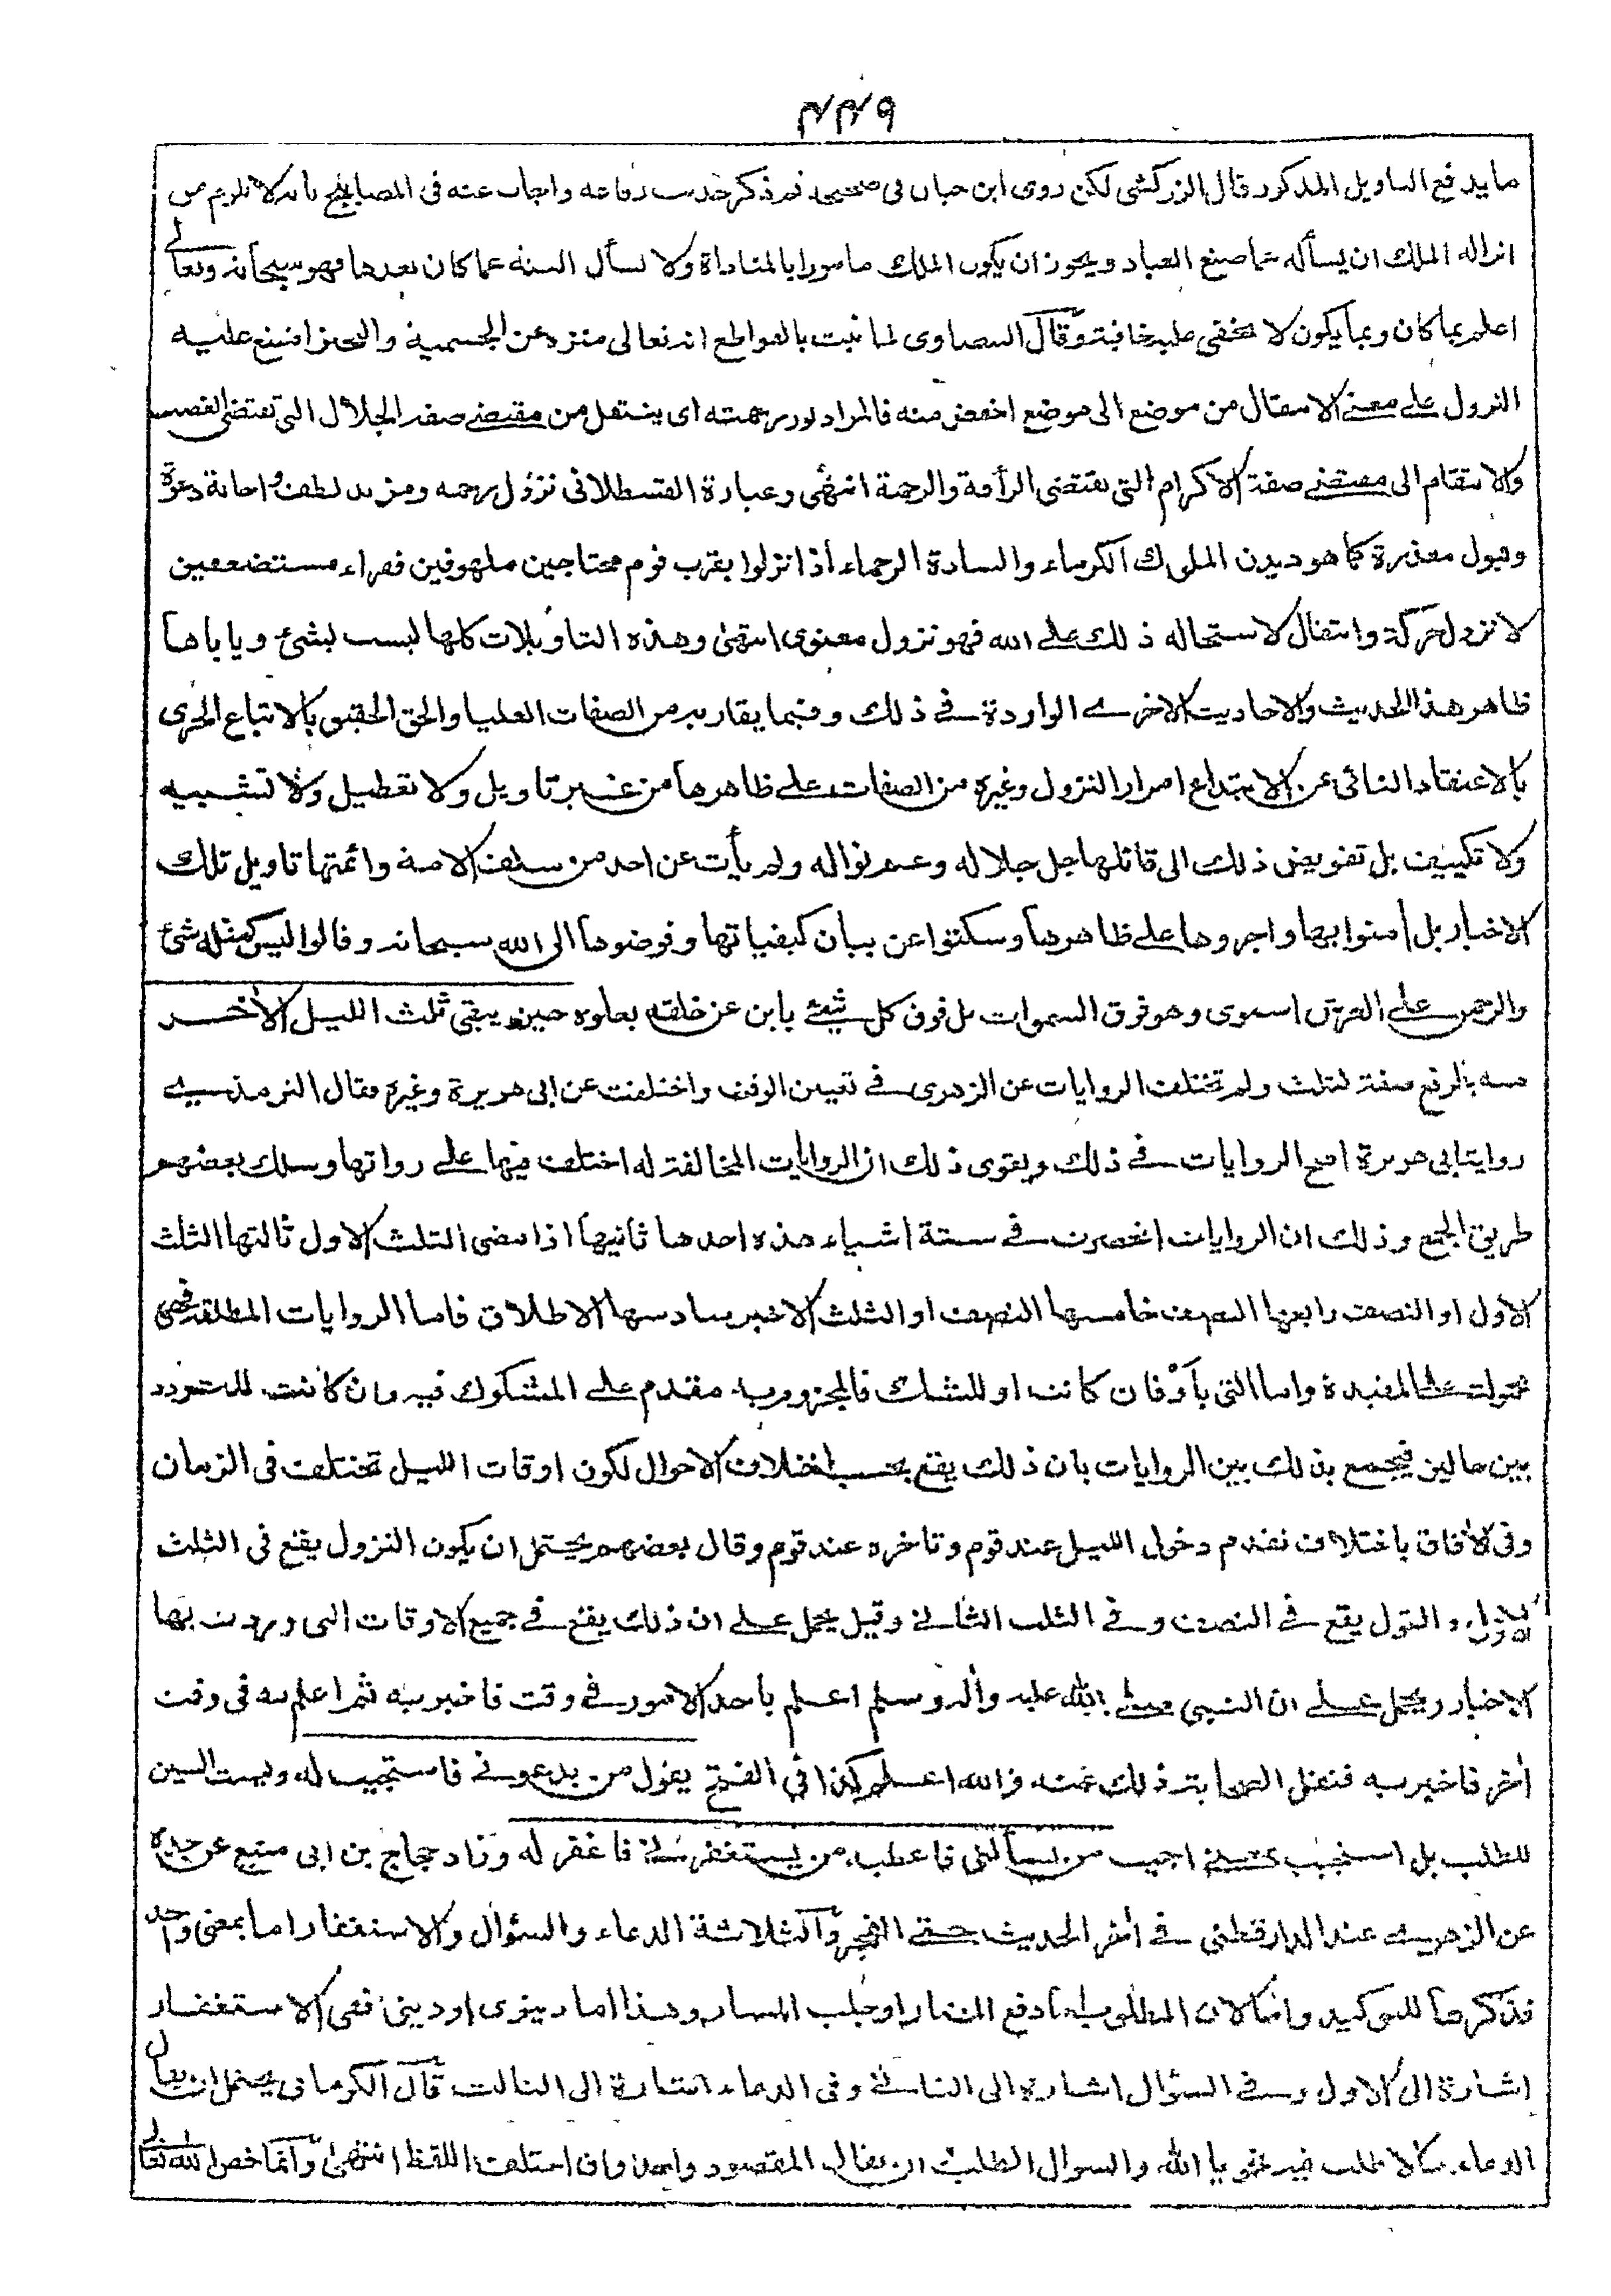 ٤٤٩
ما يدفع التاويل المذكور قال الزركشى لكن روى ابن حبان فى صحيحه ثم ذكر حديث رفاعه واجاب عنه فى المصابيح بانه لا يلزم من
انزاله الملك ان يسأله عما صنع العباد ويجوز ان يكون الملك مامورا بالمناداة ولا يسأل البتة عما كان بعدها فهو سبحانه وتعالى
اعلم بما كان وبما يكون لا تخفى عليه خافية وقال البيضاوى لما ثبت بالقواطع انه تعالى منزه عن الجسمية والتحيز امتنع عليه
النزول على معنى الانتقال من موضع الى موضع اخفض منه فالمراد نور رحمته اى ينتقل من مقتضى صفة الجلال التى تقتضى الغضب
والانتقام الى مقتضى صفة الاكرام التى تقتضى الرأفة والرحمة انتهى وعبارة القسطلانى نزول رحمه ومزيد لطف واجابة دعوة
وقبول معذرة كما هو ديدن الملوك الكرماء والسادة الرحماء اذا نزلوا بقرب قوم محتاجين ملهوفين فقراء مستضعفين
لا نزول حركة وانتقال لاستحاله ذلك على الله فهو نزول معنوى انتهى وهذه التاويلات كلها ليست بشئ ويا باها
ظاهر هذا الحديث والاحاديث الاخرى الواردة فى ذلك وفيما يقاربه من الصفات العليا والحق الحقيق بالاتباع الحرى
بالاعتقاد النائى عن الابتداع امرار النزول وغيره من الصفات على ظاهرها من غير تاويل ولا تعطيل ولا تشبيه
ولا تكييف بل تفويض ذلك الى قائلها جل جلاله وعم نواله ولم يأت عن احد من سلف الامة وائمتها تاويل تلك
الاخبار بل امنوا بها واجروها على ظاهرها وسكتوا عن بيان كيفياتها وفوضوها الى الله سبحانه وقالوا ليس كمثله شئ
والرحمن على العرش استوى وهو فوق السموات بل فوق كل شئ باين عن خلقه بعلوه حين يبقى ثلث الليل الاخر
منه بالرفع صفة لثلث ولم تختلف الروايات عن الزهرى فى تعيين الوقت واختلفت عن ابى هريرة وغيره فقال الترمذى
رواية ابى هريرة اصح الروايات فى ذلك ويقوى ذلك ان الروايات المخالفة له اختلف فيها على رواتها وسلك بعضهم
طريق الجمع وذلك ان الروايات انحصرت فى ستة اشياء هذه احدها ثانيها اذا مضى الثلث الاول ثالثها الثلث
الاول او النصف رابعها النصف خامسها النصف او الثلث الاخير سادسها الاطلاق فاما الروايات المطلقة فهى
محمولة على المقيدة واما التى باو فان كانت او للشك فالمجزوم به مقدم على المشكوك فيه وان كانت للتردد
بين حالين فيجمع بذلك بين الروايات بان ذلك يقع بحسب اختلاف الاحوال لكون اوقات الليل تختلف فى الزمان
وفى الآفاق باختلاف تقدم دخول الليل عند قوم وتاخره عند قوم وقال بعضهم يحتمل ان يكون النزول يقع فى الثلث
الاول والقول يقع فى النصف وفى الثلث الثانى وقيل يحمل على ان ذلك يقع فى جميع الاوقات التى وردت بها
الاخبار ويحمل على ان النبى صلى الله عليه وآله وسلم اعلم باحد الامور فى وقت فاخبر به ثم اعلم به فى وقت
آخر فاخبر به فنقل الصحابة ذلك عنه والله اعلم كذا فى الفتح يقول من يدعونى فاستجيب له وليست السين
للطلب بل استجيب بمعنى اجيب من يسألنى فاعطيه من يستغفرنى فاغفر له وزاد حجاج بن ابى منيع عن جده
عن الزهرى عند الدارقطنى فى آخر الحديث حتى الفجر والثلاثة الدعاء والسؤال والاستغفار اما بمعنى واحد
فذكرها للتوكيد واما لان المطلوب اما دفع المضار او جلب المسار وهذا اما دنيوى او دينى ففى الاستغفار
اشارة الى الاول وفى السؤال اشارة الى الثانى وفى الدعاء اشارة الى الثالث قال الكرمانى يحتمل ان يقال
الدعاء ما لا طلب فيه نحو يا الله والسوال الطلب او يقال المقصود واحد وان اختلف اللفظ انتهى وانما خص الله تعالى